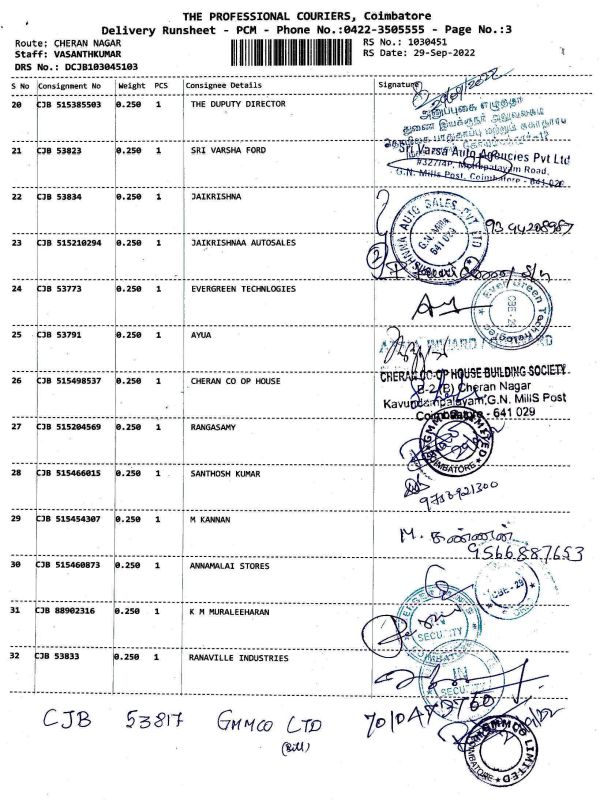 THE PROFESSIONAL COURIERS, Coimbatore
Delivery Runsheet - PCM - Phone No.:0422-3505555 - Page No.:3
Route: CHERAN NAGAR
RS No.: 1030451
Staff: VASANTHKUMAR
RS Date: 29-Sep-2022
DRS No.: DCJB103045103
S No Consignment No Weight PCS Consignee Details Signature
20 CJB 515385503 0.250 1 THE DUPUTY DIRECTOR
29/09/2022
21 CJB 53823 0.250 1 SRI VARSHA FORD
Sri Varsa Auto Agencies Pvt Ltd
G.N. Mills Post, Coimbatore - 641 029
22 CJB 53834 0.250 1 JAIKRISHNA
AUTO SALES PVT LTD
G.N. Mills
641 029
9344208967
23 CJB 515210294 0.250 1 JAIKRISHNAA AUTOSALES
24 CJB 53773 0.250 1 EVERGREEN TECHNLOGIES
Ever Green Technologies
25 CJB 53791 0.250 1 AYUA
26 CJB 515498537 0.250 1 CHERAN CO OP HOUSE
CHERAN CO-OP HOUSE BUILDING SOCIETY
B-2(B) Cheran Nagar
Kavundampalayam,G.N. MillS Post
Coimbatore - 641 029
27 CJB 515204569 0.250 1 RANGASAMY
GMMCO LIMITED
COIMBATORE
28 CJB 515466015 0.250 1 SANTHOSH KUMAR
9713921300
29 CJB 515454307 0.250 1 M KANNAN
M. கண்ணன்
9566887653
30 CJB 515460873 0.250 1 ANNAMALAI STORES
CBE - 29
31 CJB 88902316 0.250 1 K M MURALEEHARAN
IN
SECURITY
32 CJB 53833 0.250 1 RANAVILLE INDUSTRIES
COIMBATORE
IN
SECURITY
CJB 53817 GMMCO LTD
(Bill)
GMMCO LIMITED
COIMBATORE